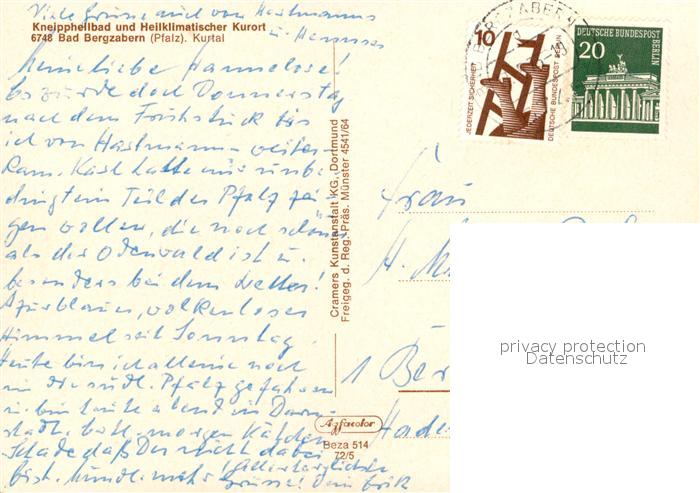 Viele Grüsse auch von Hastmanns
u. Hannes
Kneippheilbad und Heilklimatischer Kurort
6748 Bad Bergzabern (Pfalz). Kurtal
Meine liebe Hannelose!
Es würde doch Donnerstag
nach dem Frühstück bis
ich von Hastmanns weiter-
kam. Karl hatte mir unbe-
dingt ein Teil der Pfalz zei-
gen wollen, die noch schöner
als der Odenwald ist u.
besonders bei dem Wetter!
Azurblauer, wolkenloser
Himmel seit Sonntag.
Heute bin ich alleine noch
in die südl. Pfalz gefahren
u. bin heute abend in Darm-
stadt, morgen
Schade daß Du nicht dabei
bist. mehr! Herzlichste
Grüsse! Dein Erik
Cramers Kunstanstalt KG, Dortmund
Freigeg. d. Reg.-Präs. Münster 4541/64
Agfacolor
Beza 514
72/5
10
JEDERZEIT SICHERHEIT
DEUTSCHE BUNDESPOST BERLIN
DEUTSCHE BUNDESPOST
20
BERLIN
Frau
H.
1 Ber
privacy protection
Datenschutz